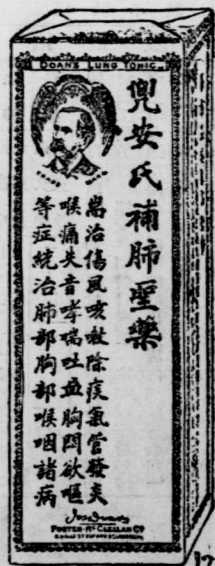 DOAN'S LUNG TONIC
TRADE MARK
兜安氏補肺聖藥
耑治傷風咳嗽除痰氣管發炎
喉痛失音哮喘吐血胸悶欲嘔
等症統治肺部胸部喉咽諸病
FOSTER-McCLELLAN CO